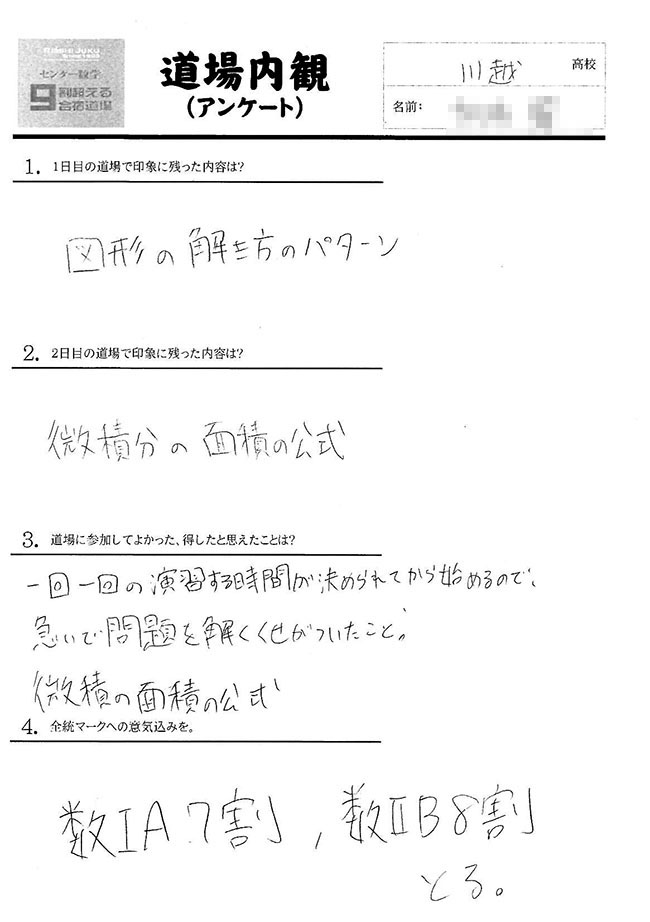 センター数学
9割超える
合宿道場
道場内観
(アンケート)
川越 高校
名前:
1. 1日目の道場で印象に残った内容は?
図形の解き方のパターン
2. 2日目の道場で印象に残った内容は?
微積分の面積の公式
3. 道場に参加してよかった、得したと思えたことは?
一回一回の演習する時間が決められてから始めるので、
急いで問題を解くくせがついたこと。
微積の面積の公式
4. 全統マークへの意気込みを。
数ⅠA 7割, 数ⅡB 8割
とる。